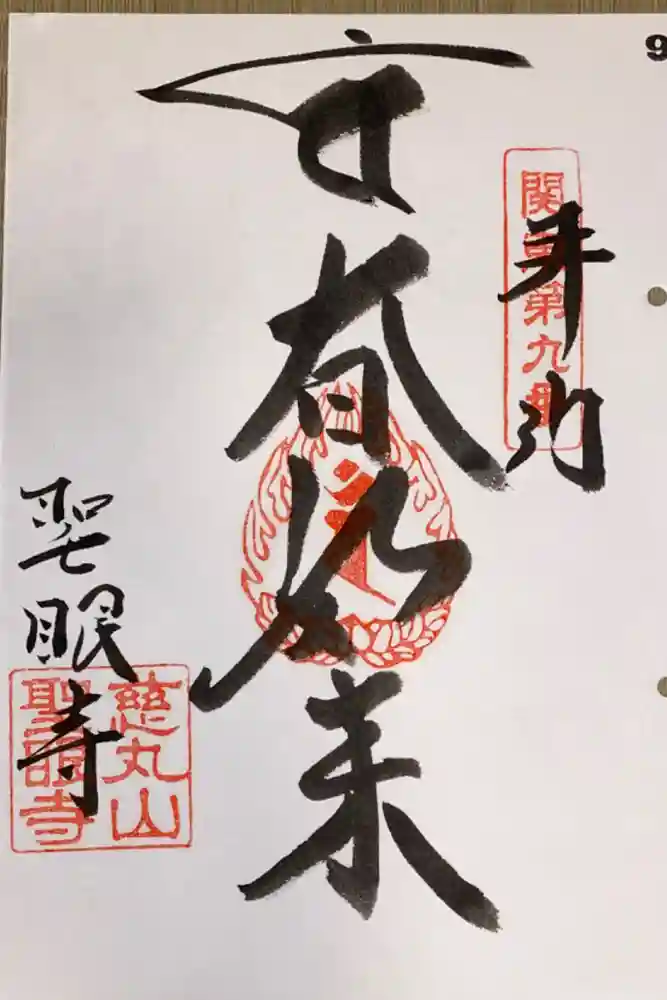 9
奉拝
関 第九番
如来
聖眼寺
慈丸山
聖眼寺